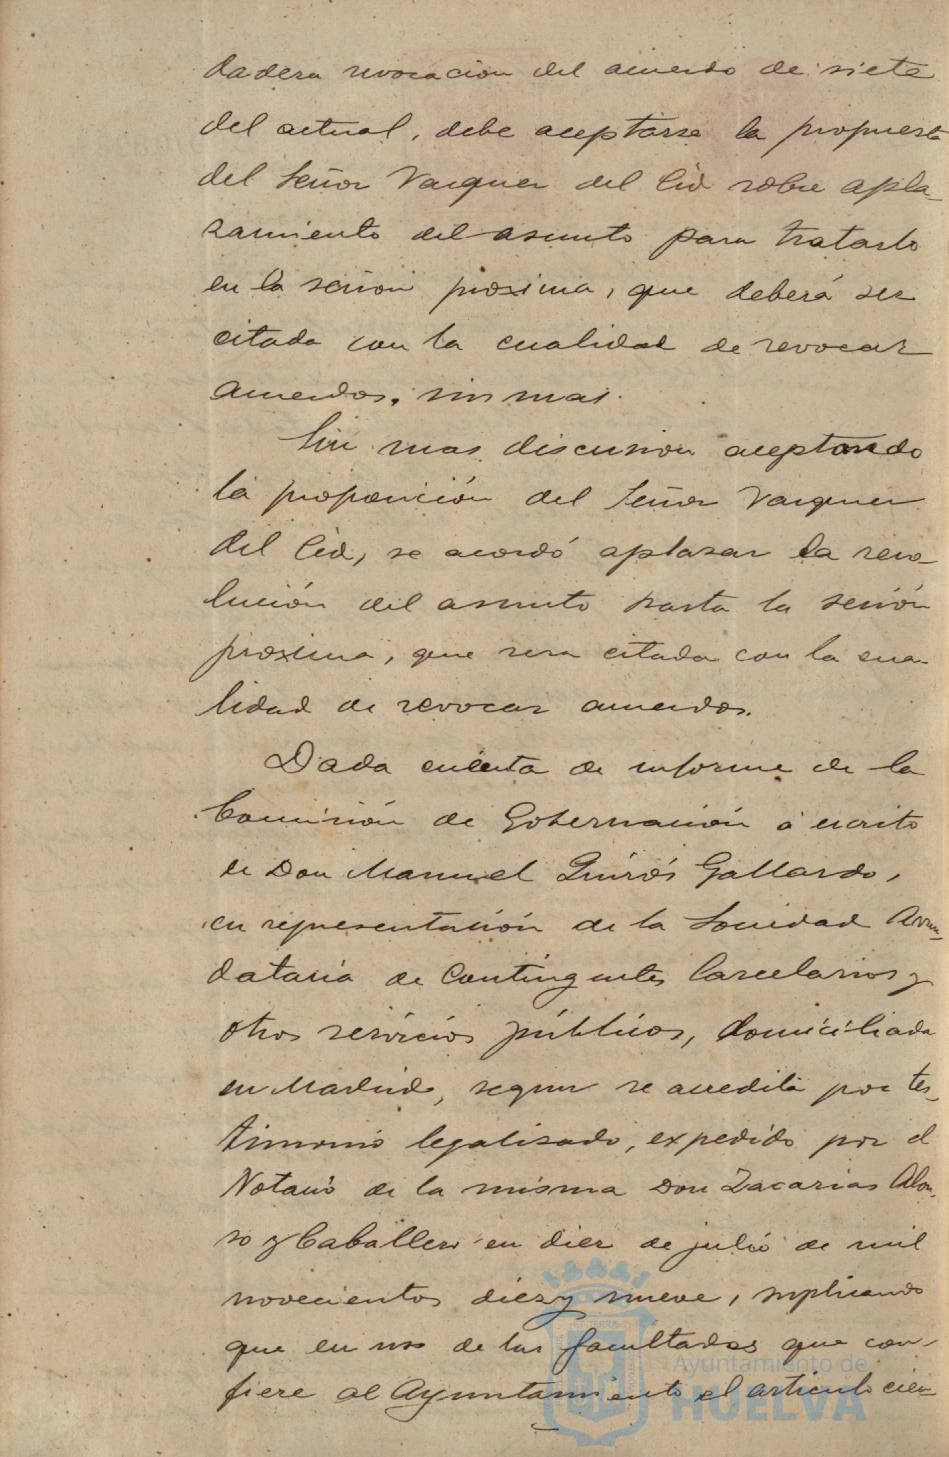 dadera revocacion del acuerdo de siete
del actual, debe aceptarse la propuesta
del Señor Vazquez del Cid sobre apla-
zamiento del asunto para tratarlo
en la sesion proxima, que deberá ser
citada con la cualidad de revocar
acuerdos, sin mas.
Sin mas discusion aceptando
la proposición del Señor Vazquez
del Cid, se acordó aplazar la reso-
lución del asunto hasta la sesión
proxima, que sera citada con la cua-
lidad de revocar acuerdos.
Dada cuenta de informe de la
Comisión de Gobernación á escrito
de Don Manuel Quirós Gallardo,
en representación de la Sociedad Arren-
dataria de Contingentes Carcelarios y
otros servicios públicos, domiciliada
en Madrid, segun se acredita por tes-
timonio legalizado, expedido por el
Notario de la misma Don Zacarias Alon-
so y Caballero en diez de julio de mil
novecientos diez y nueve, suplicando
que en uso de las facultades que con-
fiere al Ayuntamiento el articulo cien-
Ayuntamiento de
HUELVA